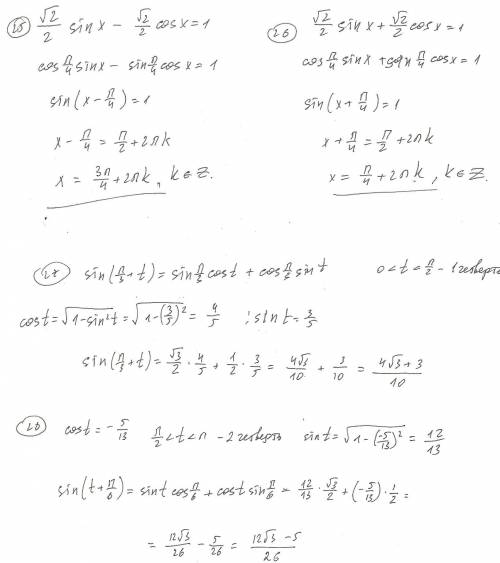 25 √2/2 sin x − √2/2 cos x = 1
cos π/4 sin x − sin π/4 cos x = 1
sin(x − π/4) = 1
x − π/4 = π/2 + 2πk
x = 3π/4 + 2πk, k ∈ Z.
26 √2/2 sin x + √2/2 cos x = 1
cos π/4 sin x + sin π/4 cos x = 1
sin(x + π/4) = 1
x + π/4 = π/2 + 2πk
x = π/4 + 2πk, k ∈ Z.
27 sin(π/3 + t) = sin π/3 cos t + cos π/3 sin t 0 < t < π/2 − 1 четверть
cos t = √(1 − sin² t) = √(1 − (3/5)²) = 4/5 ; sin t = 3/5
sin(π/3 + t) = √3/2 · 4/5 + 1/2 · 3/5 = 4√3/10 + 3/10 = (4√3 + 3)/10
28 cos t = − 5/13 π/2 < t < π − 2 четверть sin t = √(1 − (−5/13)²) = 12/13
sin(t + π/6) = sin t cos π/6 + cos t sin π/6 = 12/13 · √3/2 + (− 5/13) · 1/2 =
= 12√3/26 − 5/26 = (12√3 − 5)/26